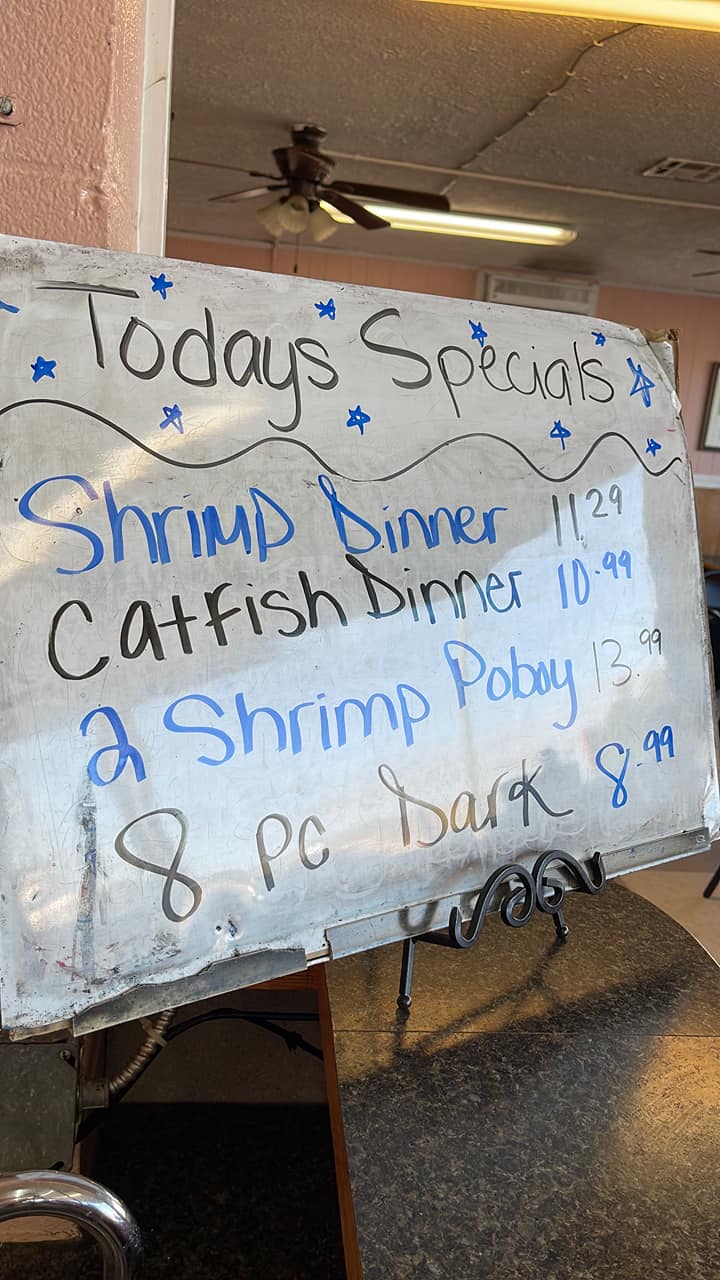 Todays Specials
Shrimp Dinner 11.29
Catfish Dinner 10.99
2 Shrimp Poboy 13.99
8 pc Dark 8.99